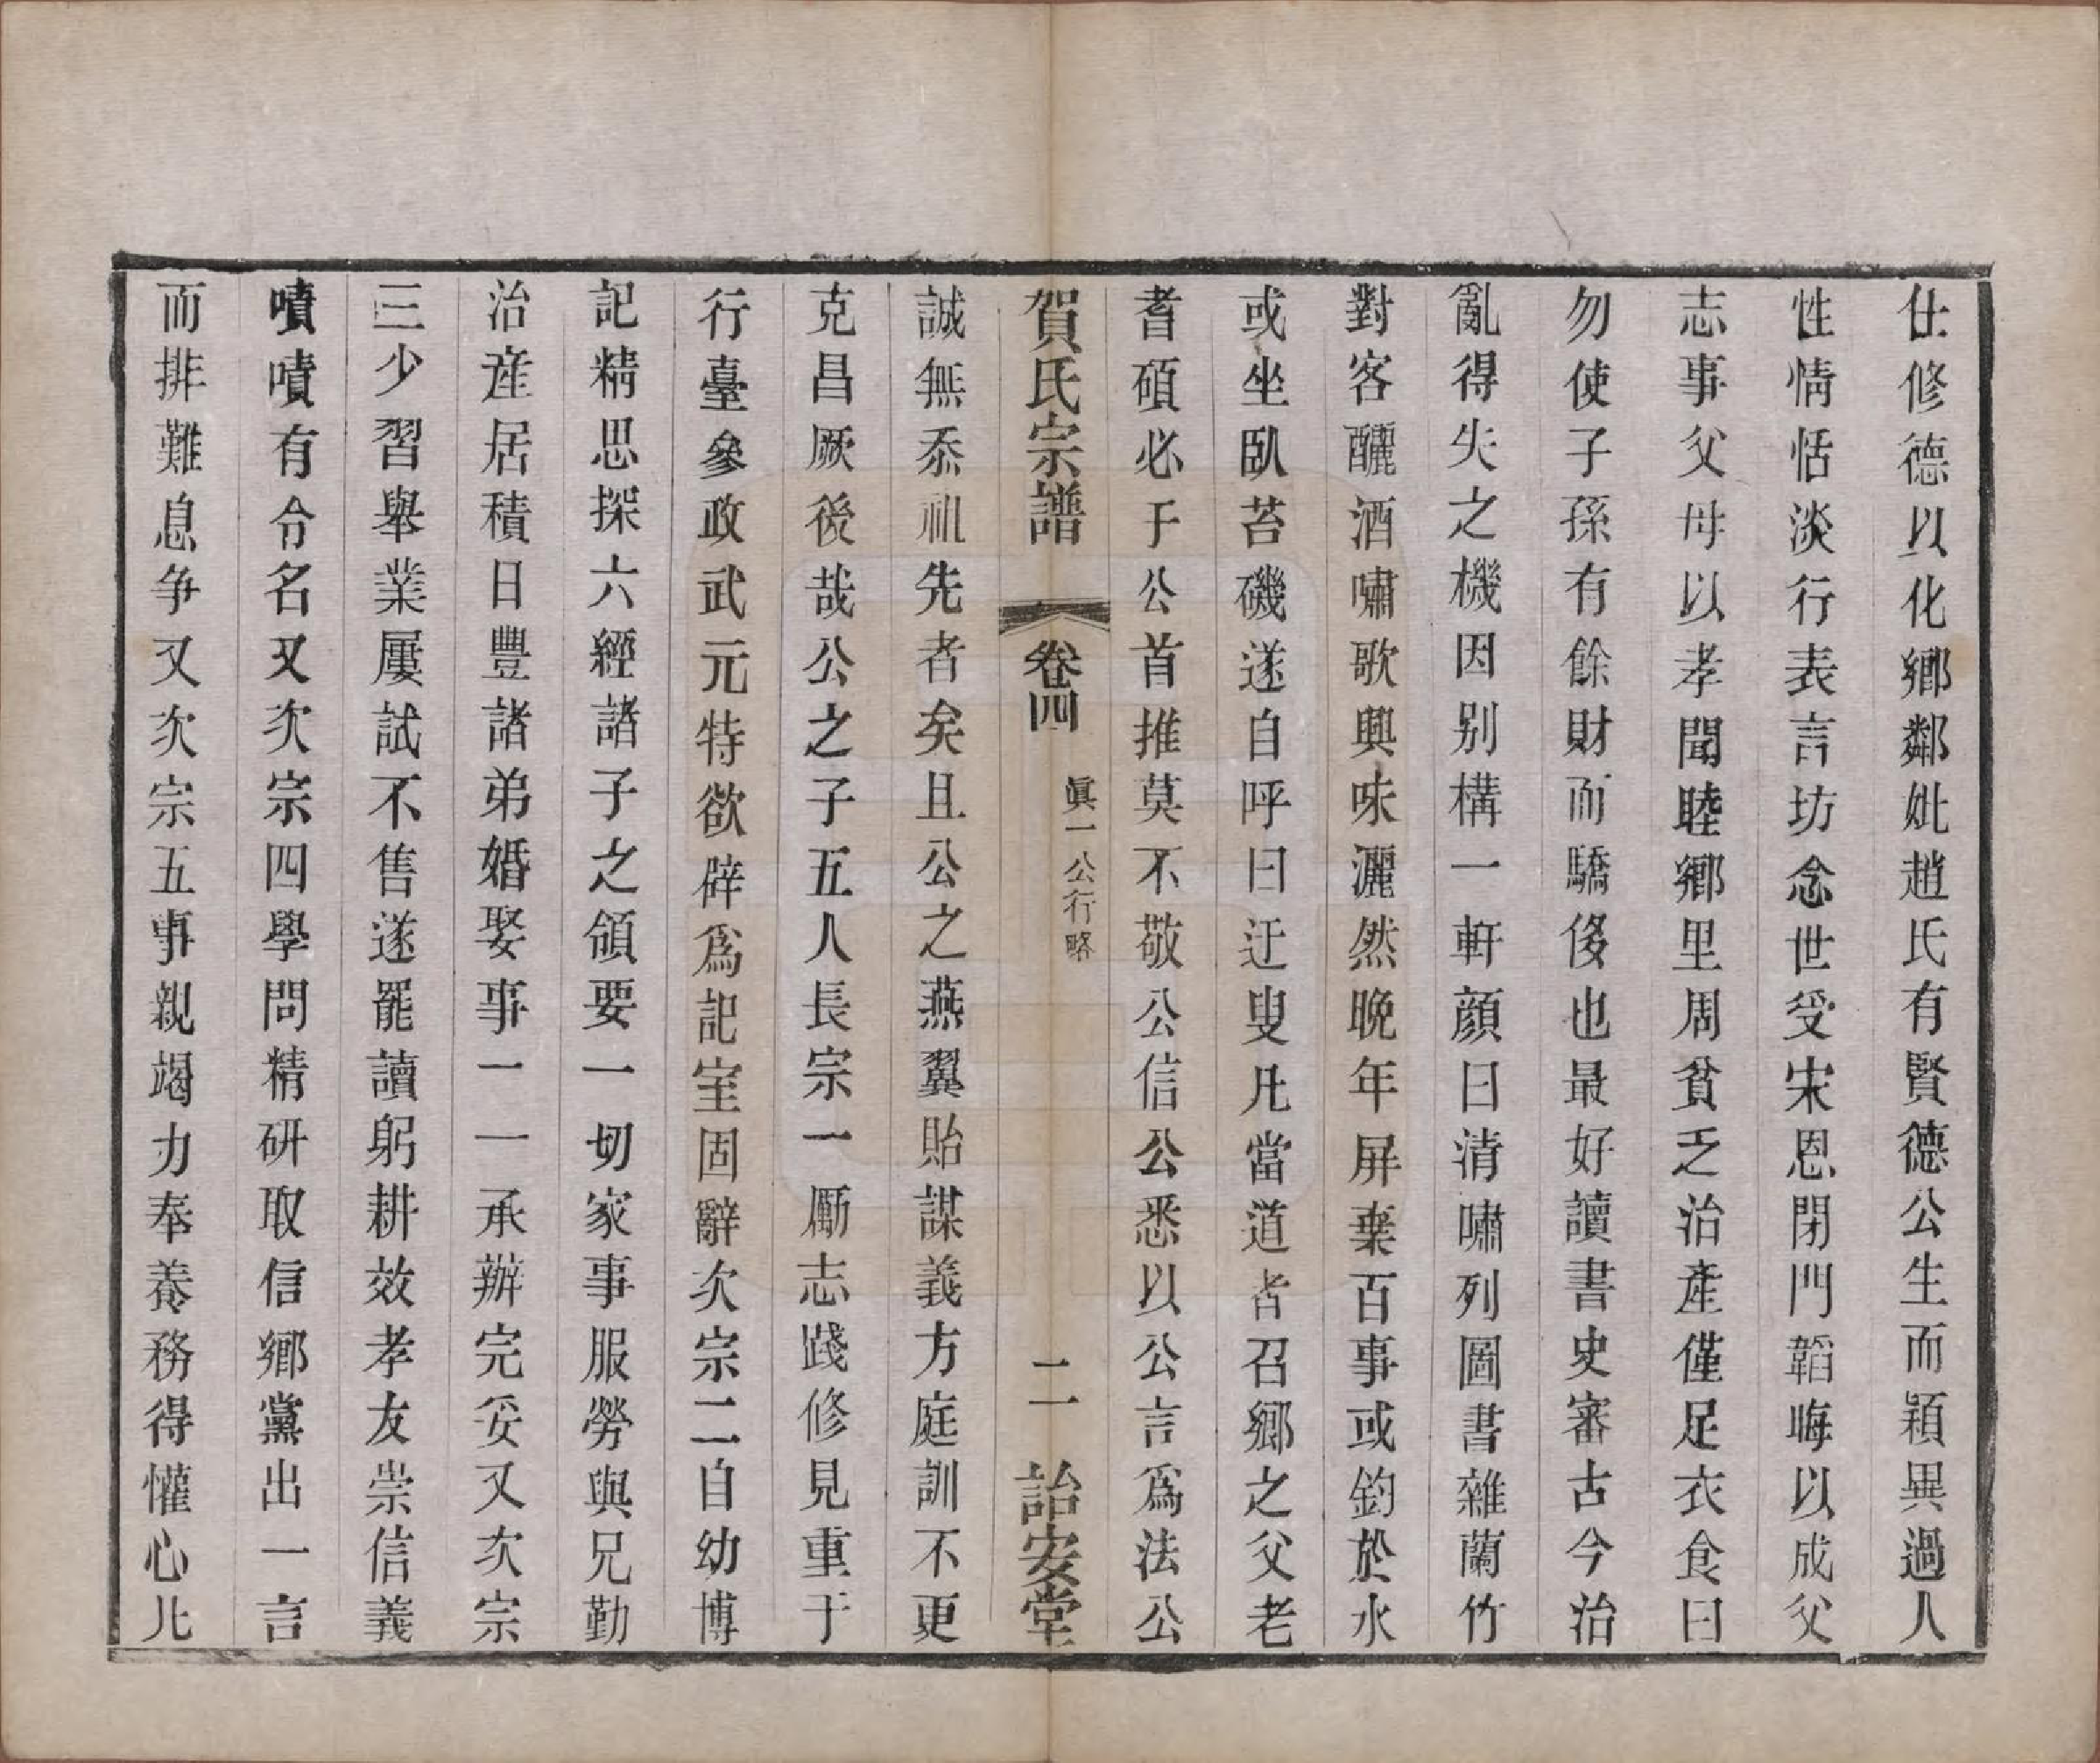 仕修德以化鄉鄰妣趙氏有賢德公生而穎異過人
性情恬淡行表言坊念世受宋恩閉門韜晦以成父
志事父母以孝聞睦鄉里周貧乏治產僅足衣食曰
勿使子孫有餘財而驕侈也最好讀書史審古今治
亂得失之機因别構一軒顔曰清嘯列圖書雜蘭竹
對客釃酒嘯歌興味灑然晚年屏棄百事或釣於水
或坐臥苔磯遂自呼曰迂叟凡當道者召鄉之父老
耆碩必于公首推莫不敬公信公悉以公言爲法公
賀氏宗譜
卷四
眞一公行略
二
詒安堂
誠無忝祖先者矣且公之燕翼貽謀義方庭訓不更
克昌厥後哉公之子五人長宗一勵志踐修見重于
行臺參政武元特欲辟爲記室固辭次宗二自幼博
記精思探六經諸子之領要一切家事服勞與兄勤
治產居積日豐諸弟婚娶事一一承辦完妥又次宗
三少習舉業屢試不售遂罷讀躬耕效孝友崇信義
嘖嘖有令名又次宗四學問精研取信鄉黨出一言
而排難息争又次宗五事親竭力奉養務得懽心凡